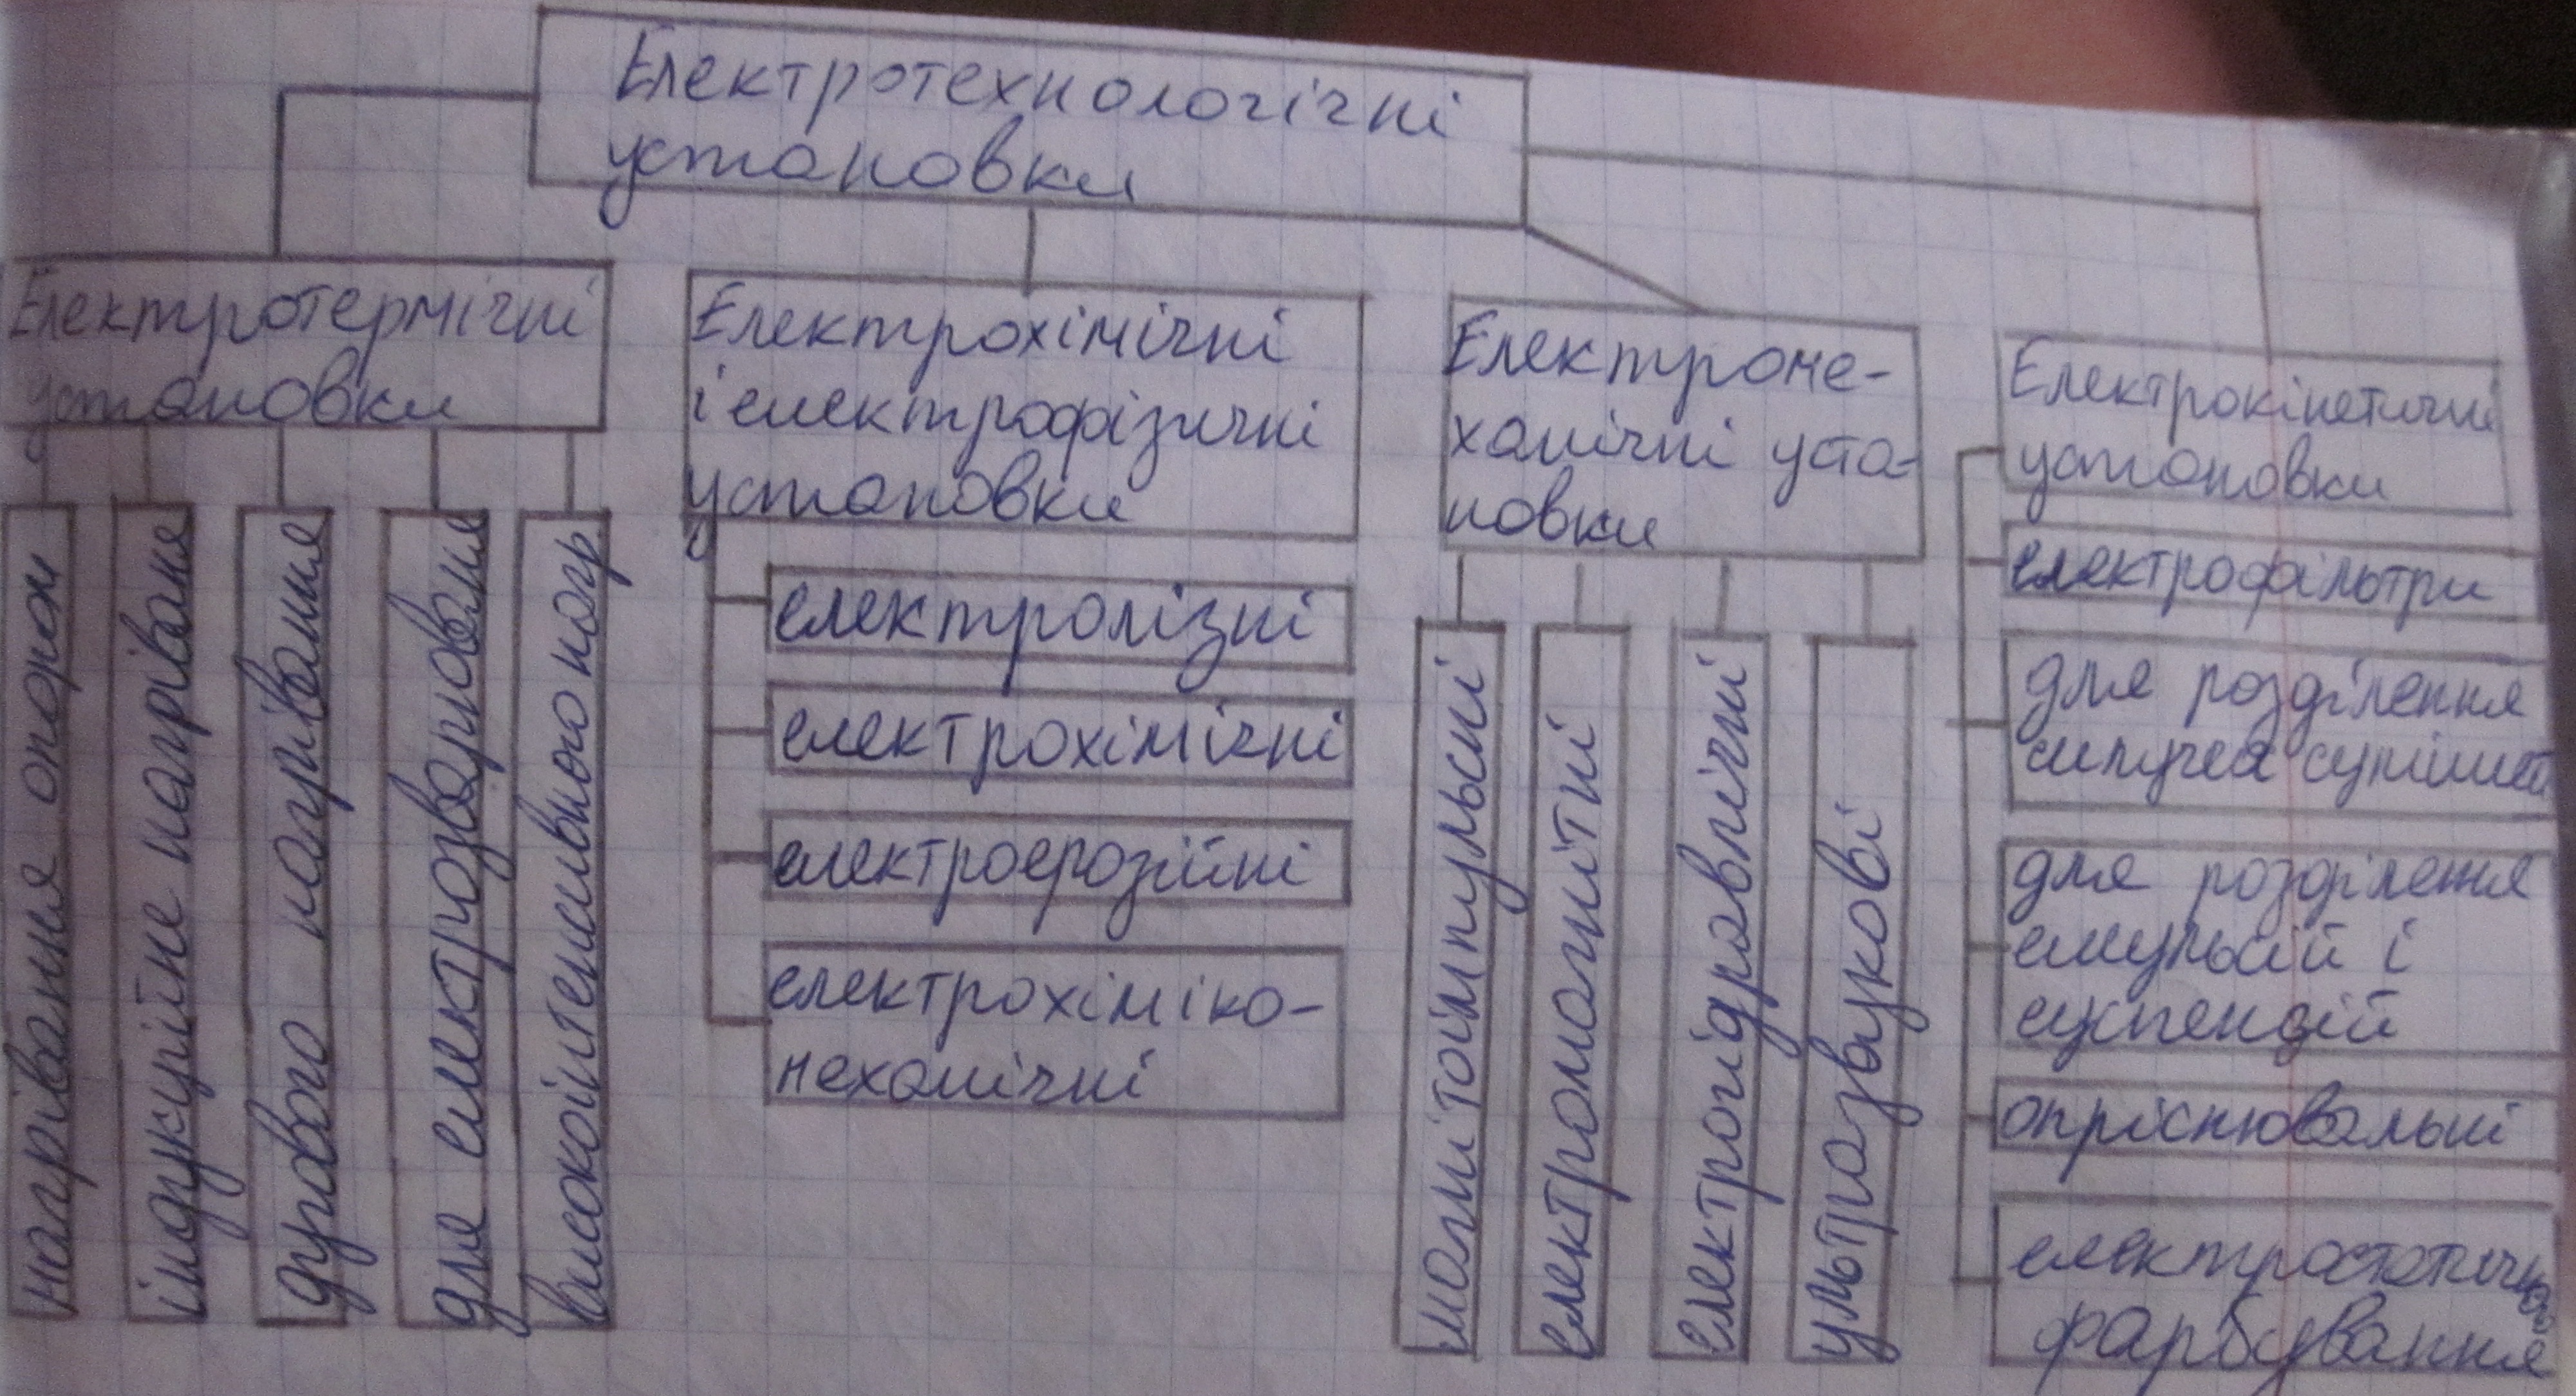 Електротехнологічні
установки
Електротермічні
установки
нагрівання опором
індукційне нагрівання
дугового нагрівання
для електрозварювання
високоінтенсивного нагр
Електрохімічні
і електрофізичні
установки
електролізні
електрохімічні
електроерозійні
електрохіміко-
механічні
Електроме-
ханічні уста-
новки
магнітоімпульсні
електромагнітні
електрогідравлічні
ультразвукові
Електрокінетичні
установки
електрофільтри
для розділення
сипучих сумішей
для розділення
емульсій і
суспензій
опріснювальні
електростатичного
фарбування